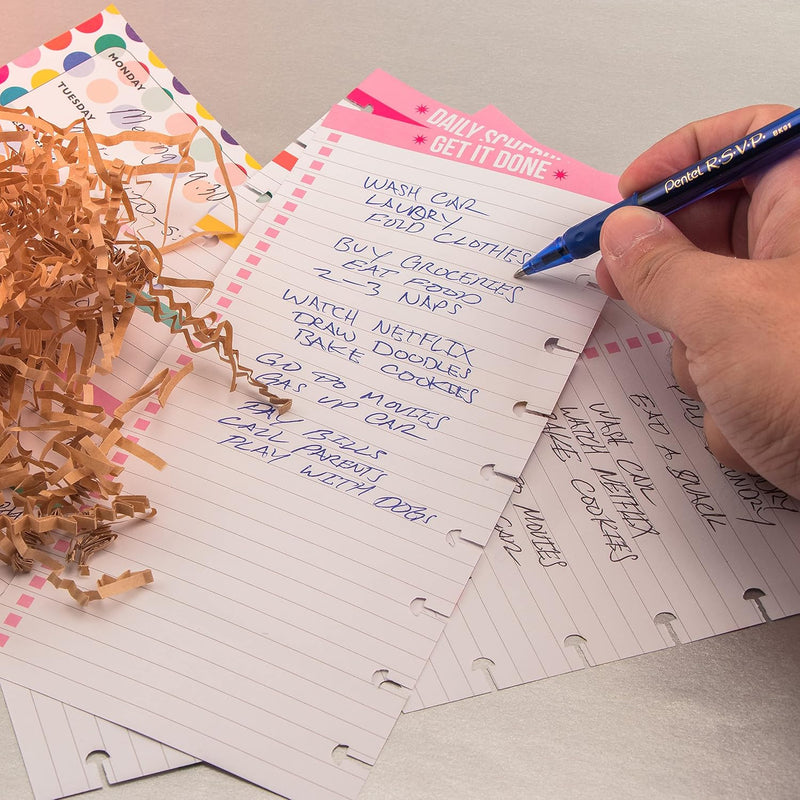 MONDAY
TUESDAY
DAILY SCHEDU
GET IT DONE
WASH CAR
LAUNDRY
FOLD CLOTHES
BUY GROCERIES
EAT FOOD
2-3 NAPS
WATCH NETFLIX
DRAW DOODLES
BAKE COOKIES
GO DO MOVIES
GAS UP CAR
PAY BILLS
CALL PARENTS
PLAY WITH DOGS
Pentel R.S.V.P. BK91
LAUNDRY
EAT A SNACK
WASH CAR
WATCH NETFLIX
BAKE COOKIES
MOVIES
CAR